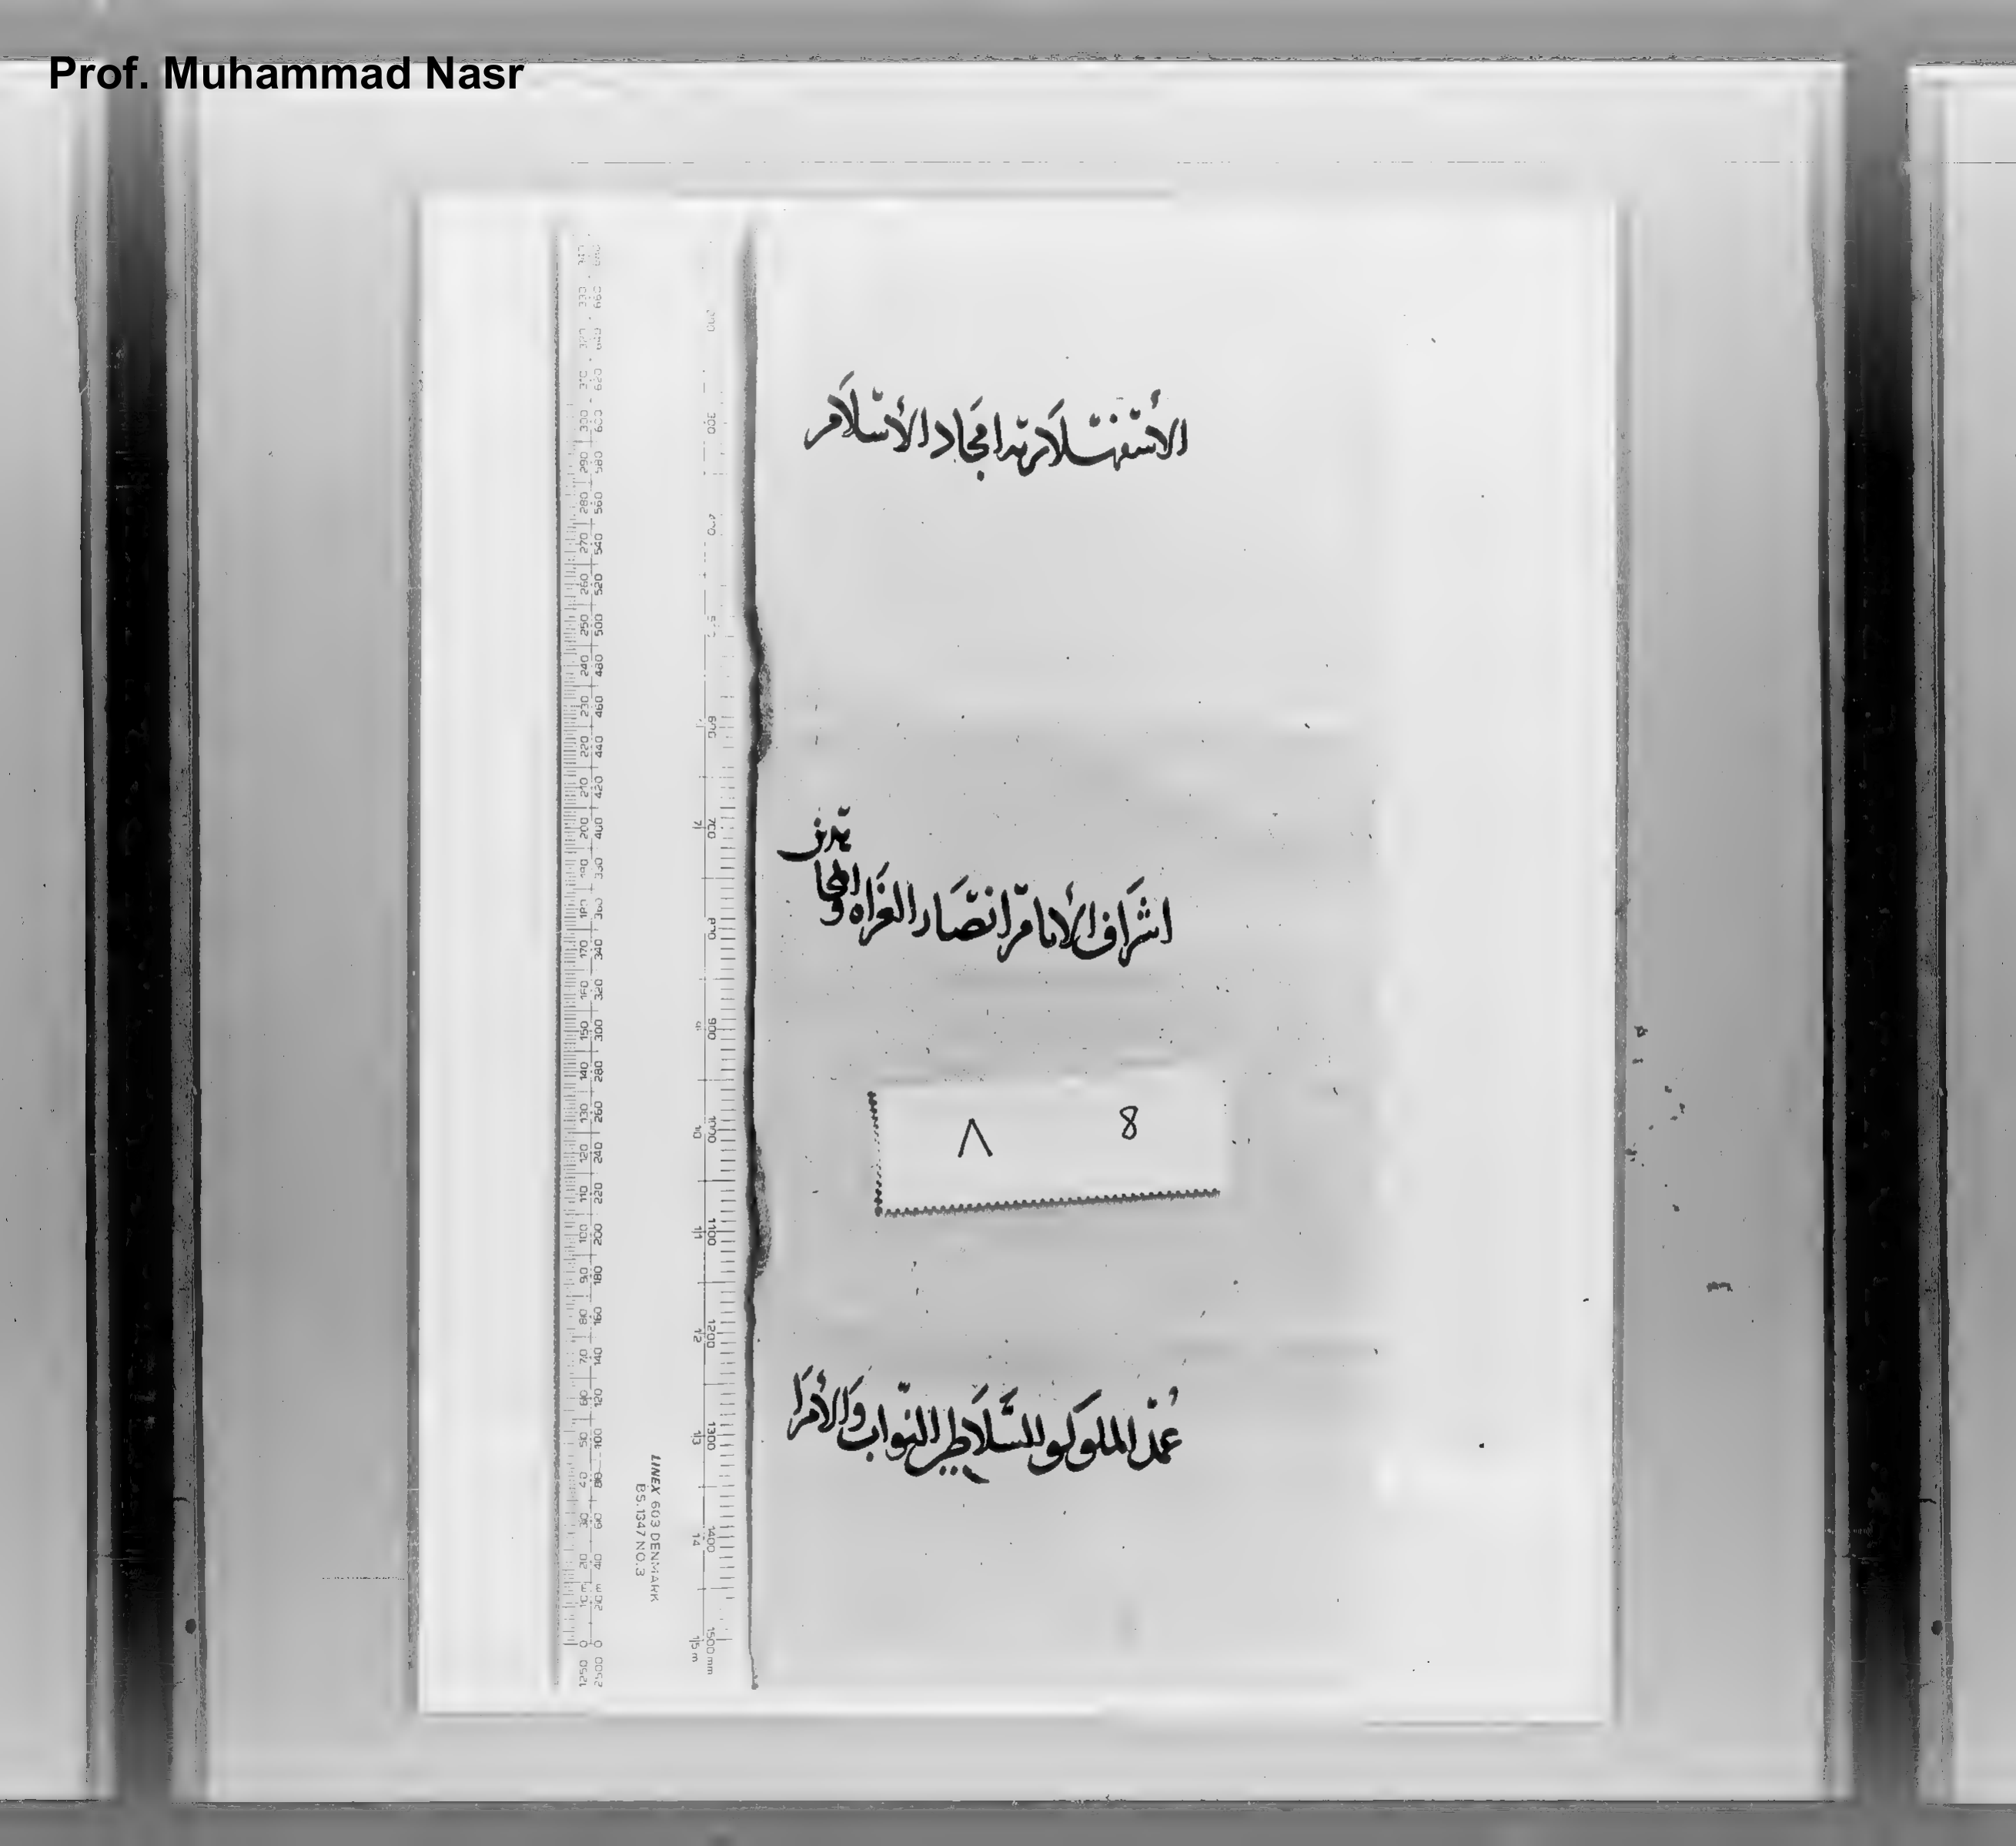 Prof. Muhammad Nasr
الأسفهسلارية امجاد الأسلام
اشراف الأنام انصار الغزاه والمجا
هدين
٨ 8
عمد الملوك والسلاطين النواب والأمرا
LINEX 603 DENMARK
BS.1347 NO.3